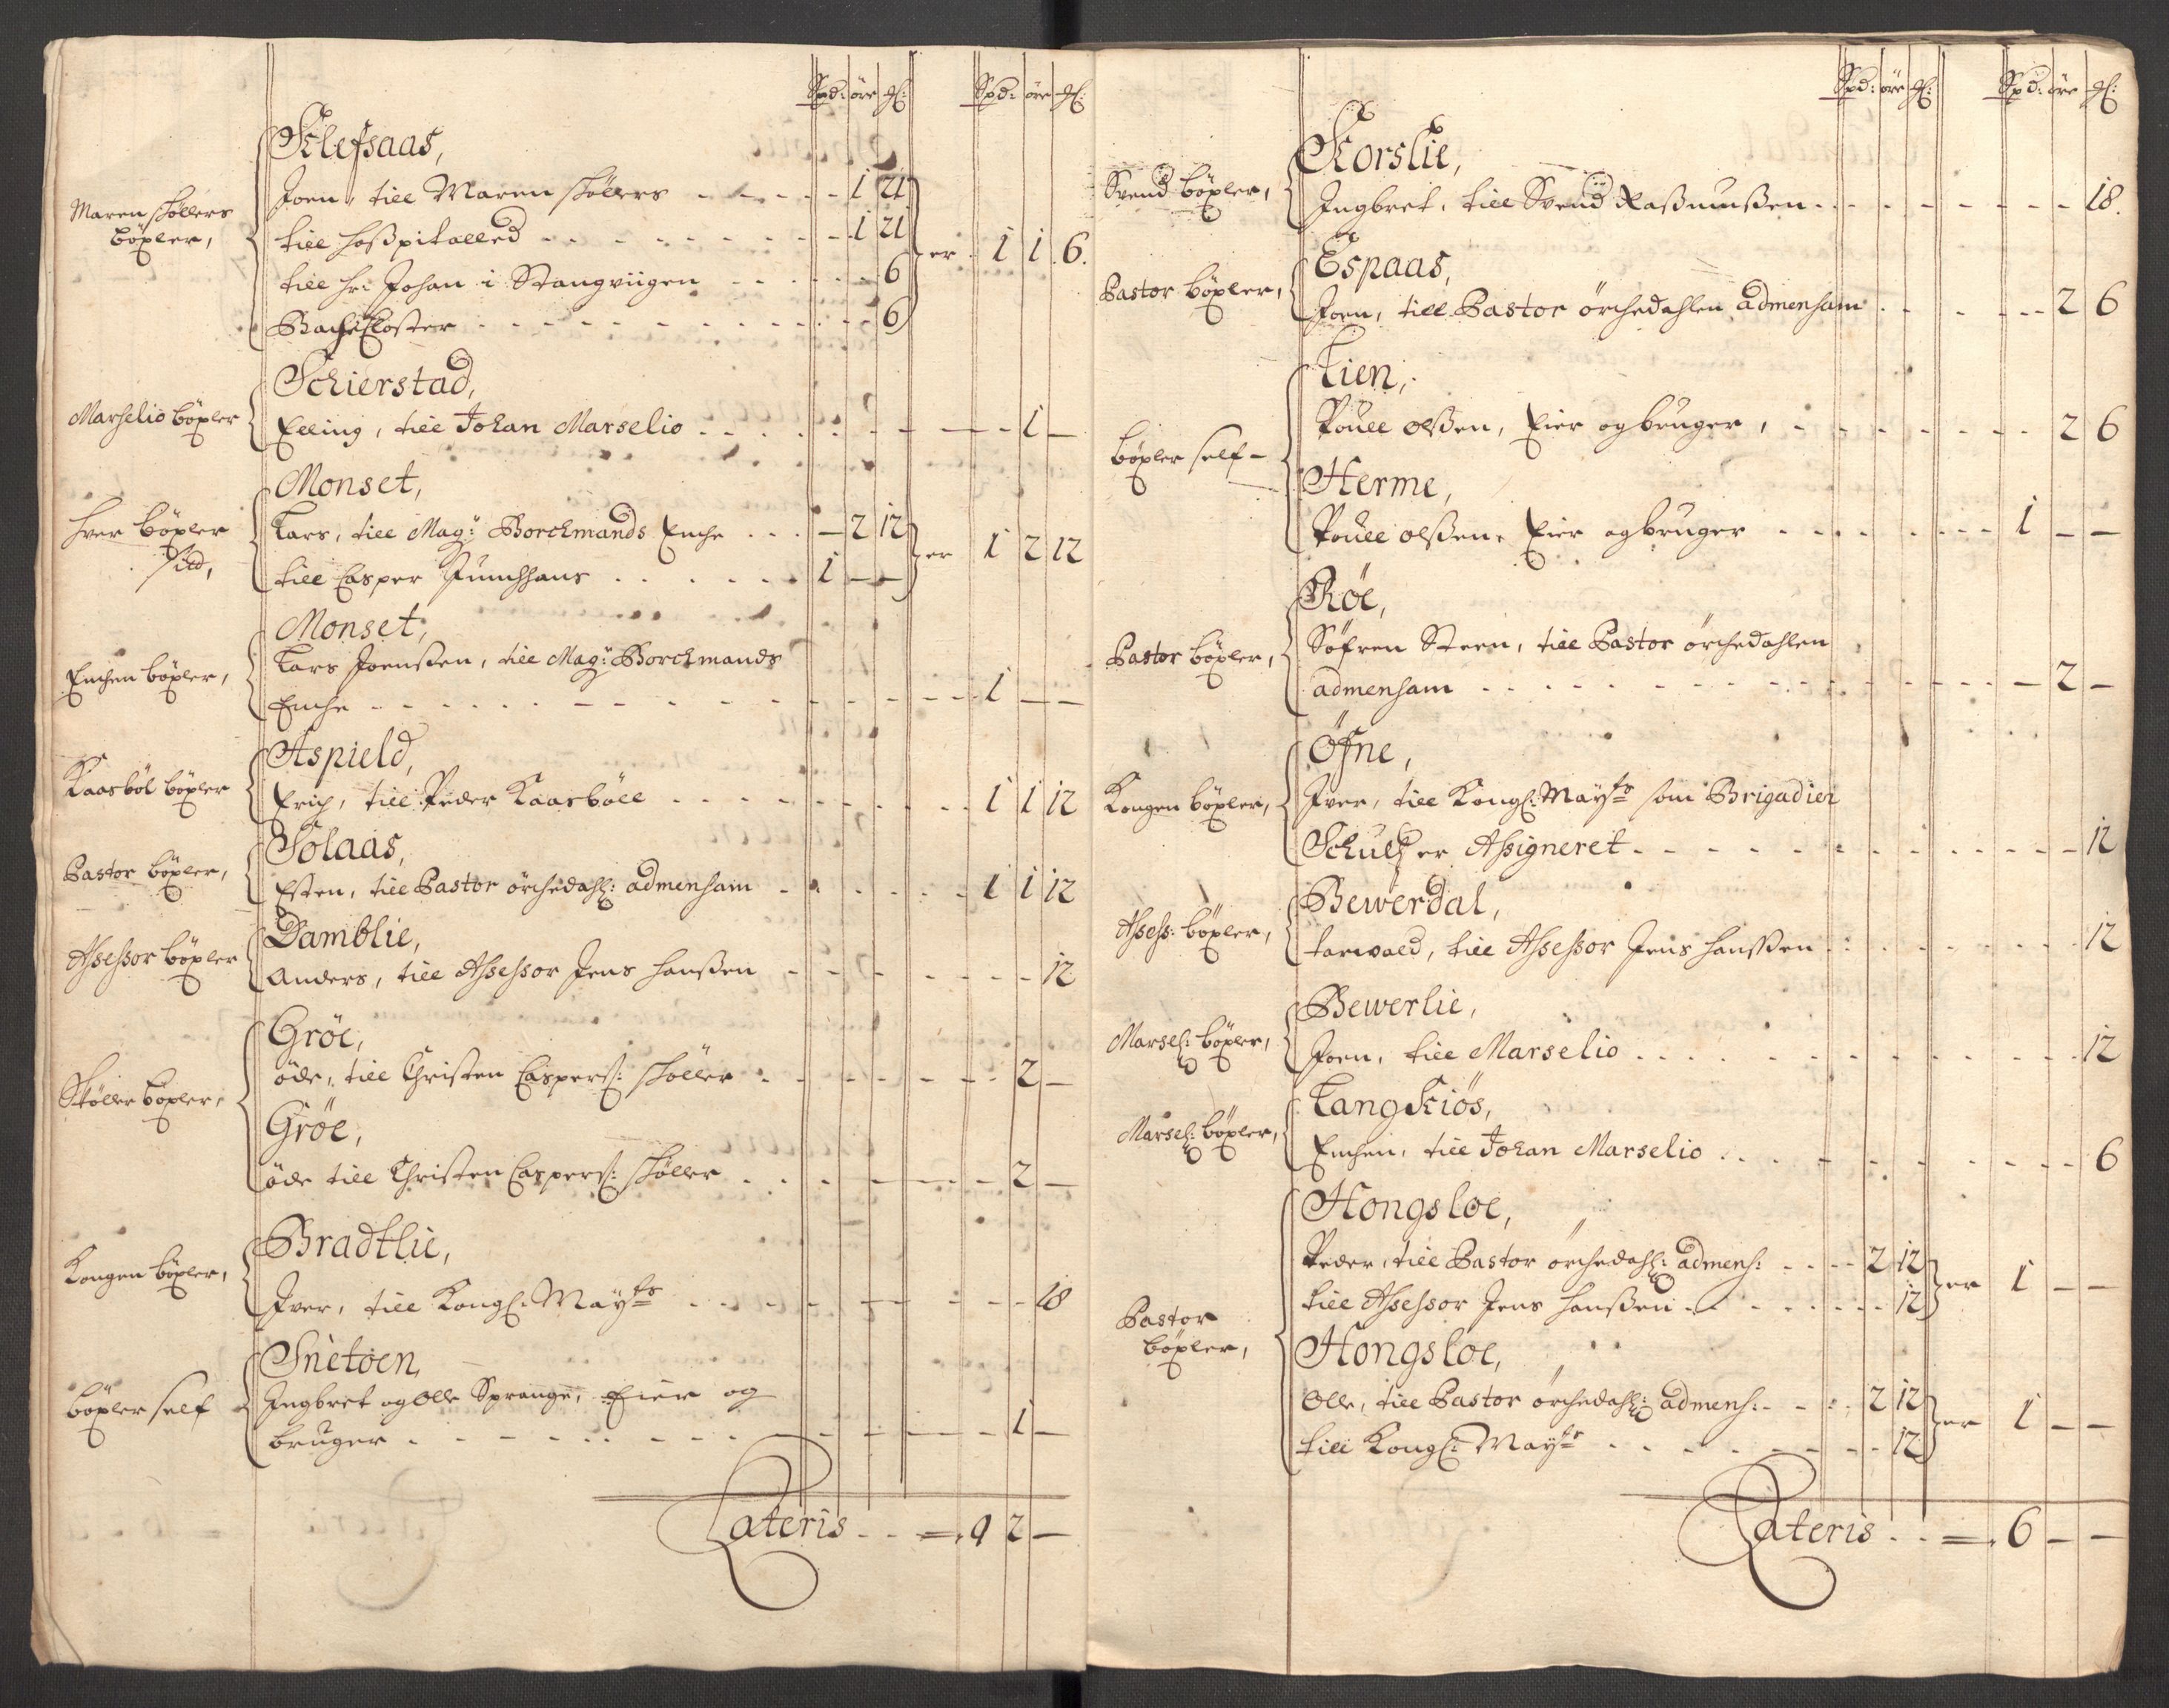 Spd: öre Spd: öre
Sklefsaas,
Maren skøllers böxler,
Joen, till Maren skøllers - 1 21
till Hosspitalled - 1 21
till hr: Johan i Stangviigen - 6
Bache Closter - 6
er 1 1 6.
Schierstad,
Marselio böxler
Elling, till Johan Marselio - 1 -
Monset,
hver böxler sit,
Lars, till Mag: Borchmands Enche - 2 12
till Casper Junchhans 1 - -
er 1 2 12
Monset,
Enchen böxler,
Lars Joenssen, till Mag: Borchmands
Enche - 1 - -
Aspield,
Kaasböl böxler
Erich, till Peder Kaasböll 1 1 12
Solaas,
Pastor böxler,
Esten, till Pastor örchedahl: admensam - 1 1 12
Damblie,
Assessor böxler
Anders, till Assessor Jens Hanssen - 12
Gröe,
Skøller böxler,
öde, till Christen Caspers: skøller - 2 -
Gröe,
öde till Christen Caspers: skøller - 2 -
Bradtlie,
Kongen böxler,
Iver, till Kongl: Mayts - 18
Snetoen,
böxler self
Ingbret og Olle Sprauge, Eier og
bruger - 1 -
Lateris - - = 9 2 -
Spd: öre Spd: öre
Storslie,
Svend böxler,
Ingbret, till Svend Rassmussen - 18.
Espaas,
Pastor böxler,
Joen, till Pastor örchedahlen admensam - 2 6
Lien,
böxler self -
Pouell olssen, Eier og bruger, - 2 6
Herme,
Pouell olssen, Eier og bruger - 1 - -
Röe,
Pastor böxler,
Söfren Steen, till Pastor örchedahlen
admensam - 2 -
Öfne,
Kongen böxler,
Iver, till Kongl: Mayts som Brigadier
Schultz er Assigneret - 12
Bewerdal,
Assess: böxler,
tarvald, till Assessor Jens Hanssen - 12
Bewerlie,
Marsel: böxler,
Joen, till Marselio - 12
Langkiös,
Marsel: böxler,
Enchen, till Johan Marselio - 6
Hongsloe,
Pastor böxler,
Peder, till Pastor örchedahl: admens: - 2 12
till Assessor Jens Hanssen - 12
er 1 - -
Hongsloe,
Olle, till Pastor örchedahl: admens: - 2 12
till Kongl: Mayts - 12
er 1 - -
Lateris - - = 6 - -